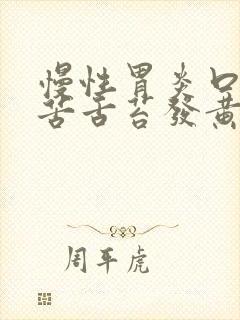 慢性胃炎口
苦舌苔發黃
周平虎